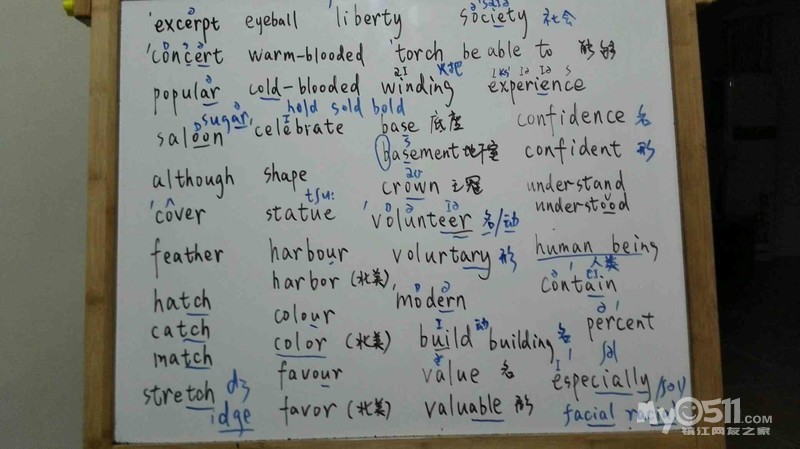 'excerpt eyeball 'liberty society 社会
'concert warm-blooded 'torch be able to 能够
火把
popular cold-blooded winding experience
sugar hold sold bold
saloon 'celebrate base 底座 confidence 名
basement 地下室 confident 形
although shape crown 王冠 understand
tʃu: understood
'cover statue 'volunteer 名/动
feather harbour volurtary 形 human being
harbor (北美) 人类
hatch modern contain
colour
catch color (北美) build 动 building 名 percent
match
favour value 名 especially
stretch dʒ
idge favor (北美) valuable 形 facial
My0511.com
镇江网友之家